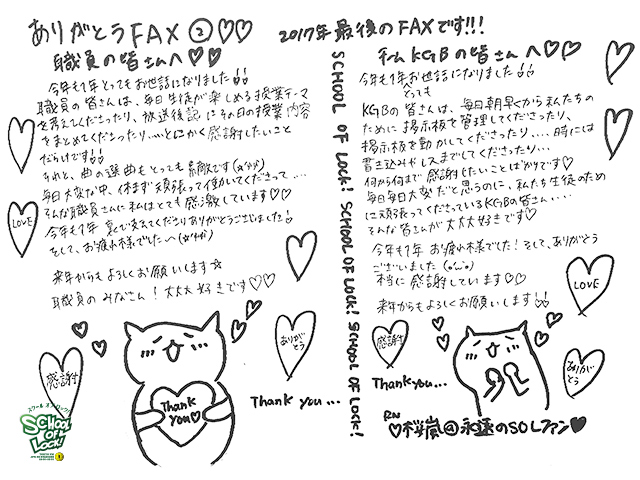 ありがとうFAX ② ♡♡
2017年最後のFAXです!!!
職員の皆さんへ♡♡
今年も1年とってもお世話になりました!!
職員の皆さんは、毎日生徒が楽しめる授業テーマ
を考えてくださったり、放送後記にその日の授業内容
をまとめてくださったり……とにかく感謝したいこと
だらけです!!
それと、曲の選曲もとっても素敵です
毎日大変な中、休まず頑張って働いてくださって…
そんな職員さんに私はとても感激しています♡♡
今年も1年裏で支えてくださりありがとうございました!
そして、お疲れ様でしたへ
来年からもよろしくお願いします☆
職員のみなさん!大大大好きです♡♡
LOVE
感謝
ありがとう
Thank you♡
Thank you...
SCHOOL OF LOCK! SCHOOL OF LOCK! SCHOOL OF LOCK!
私 KGBの皆さんへ♡♡
今年も1年とってもお世話になりました!!
KGBの皆さんは、毎日朝早くから私たちの
ために掲示板を管理してくださったり、
掲示板を動かしてくださったり....時には
書き込みやレスまでしてくださったり...
何から何まで感謝したいことばかりです♡
毎日毎日大変だと思うのに、私たち生徒のため
に頑張ってくださっているKGBの皆さん....
そんな皆さんが大大大好きです♡
今年も1年お疲れ様でした!そして、ありがとう
ございました
本当に感謝しています♡♡
来年からもよろしくお願いします!!
LOVE
感謝
ありがとう
Thank you...
RN
♡桜嵐@永遠のSOLファン♥
スクールオブロック!
SCHOOL OF LOCK!